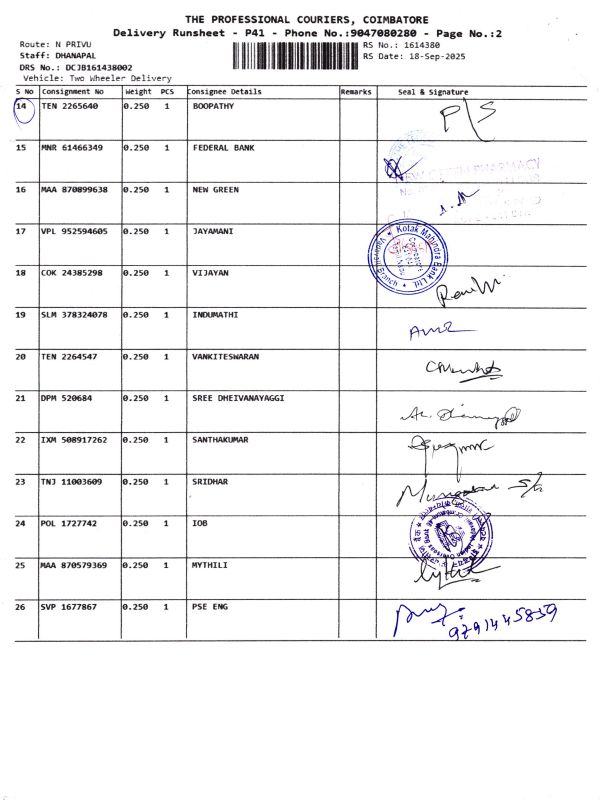 THE PROFESSIONAL COURIERS, COIMBATORE
Delivery Runsheet - P41 - Phone No.:9047080280 - Page No.:2
Route: N PRIVU
RS No.: 1614380
Staff: DHANAPAL
RS Date: 18-Sep-2025
DRS No.: DCJB161438002
Vehicle: Two Wheeler Delivery
S No Consignment No Weight PCS Consignee Details Remarks Seal & Signature
14 TEN 2265640 0.250 1 BOOPATHY P/S
15 MNR 61466349 0.250 1 FEDERAL BANK
PHARMACY
16 MAA 870899638 0.250 1 NEW GREEN
17 VPL 952594605 0.250 1 JAYAMANI
Kotak Mahindra Bank Ltd.
18 COK 24385298 0.250 1 VIJAYAN
19 SLM 378324078 0.250 1 INDUMATHI
20 TEN 2264547 0.250 1 VANKITESWARAN
21 DPM 520684 0.250 1 SREE DHEIVANAYAGGI
22 IXM 508917262 0.250 1 SANTHAKUMAR
23 TNJ 11003609 0.250 1 SRIDHAR
24 POL 1727742 0.250 1 IOB
25 MAA 870579369 0.250 1 MYTHILI
26 SVP 1677867 0.250 1 PSE ENG
9791445859